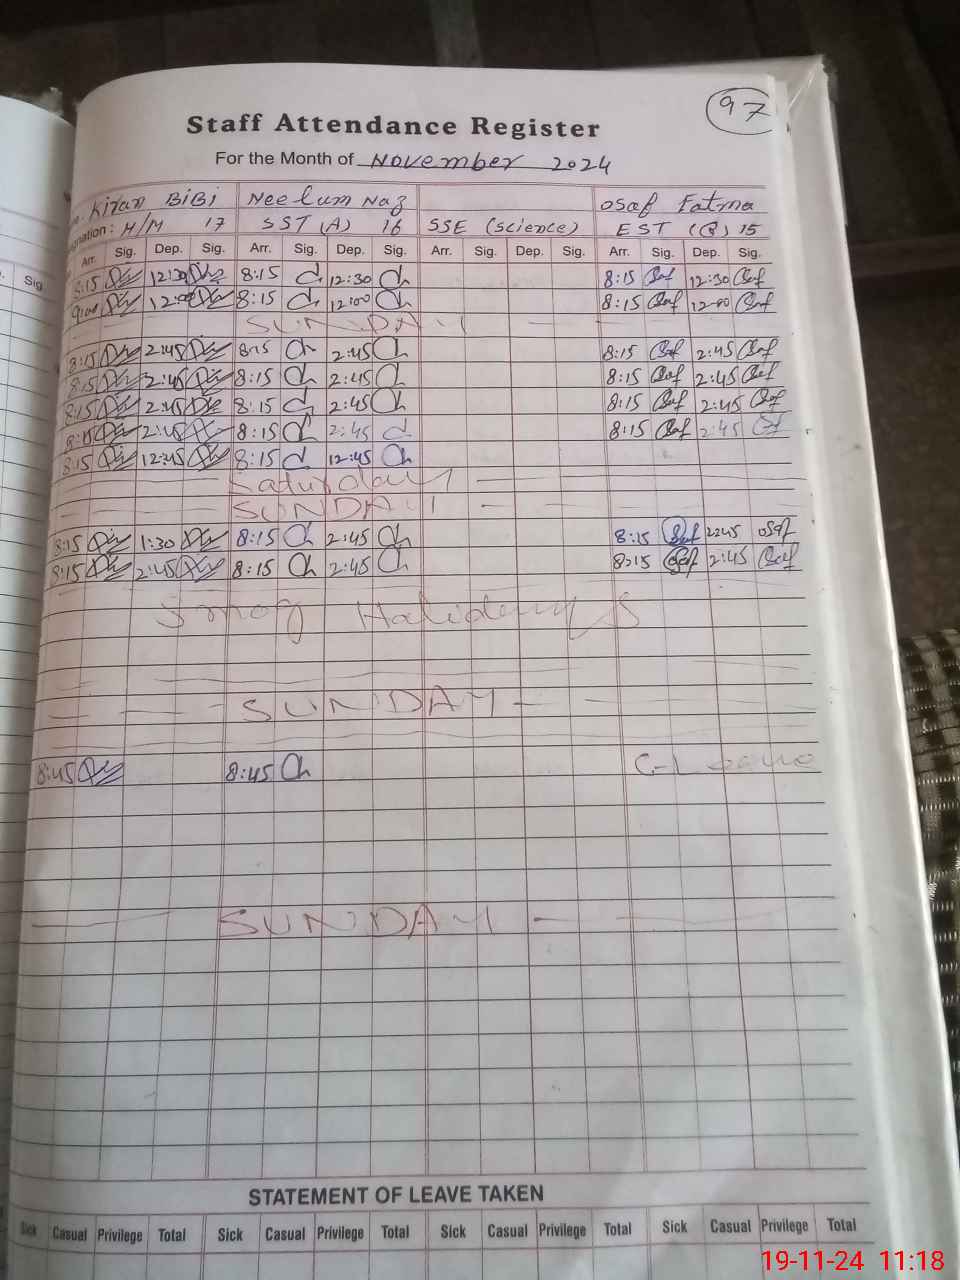 97
Staff Attendance Register
For the Month of November 2024
Kiran BiBi Neelum Naz Osaf Fatma
Designation : H/M 17 SST (A) 16 SSE (Science) EST ( ) 15
Arr. Sig. Dep. Sig. Arr. Sig. Dep. Sig. Arr. Sig. Dep. Sig. Arr. Sig. Dep. Sig.
Sig
8:15 12:30 8:15 Ch 12:30 Ch 8:15 Osaf 12:30 Osaf
9:00 12:00 8:15 Ch 12:00 Ch 8:15 Osaf 12:00 Osaf
SUNDAY
8:15 2:45 8:15 Ch 2:45 Ch 8:15 Osaf 2:45 Osaf
8:15 2:45 8:15 Ch 2:45 Ch 8:15 Osaf 2:45 Osaf
8:15 2:45 8:15 Ch 2:45 Ch 8:15 Osaf 2:45 Osaf
8:15 2:45 8:15 Ch 2:45 Ch 8:15 Osaf 2:45 Osaf
8:15 12:45 8:15 Ch 12:45 Ch
Saturday
SUNDAY
8:15 1:30 8:15 Ch 2:45 Ch 8:15 Osaf 2:45 Osaf
8:15 2:45 8:15 Ch 2:45 Ch 8:15 Osaf 2:45 Osaf
Smog Holidays
SUNDAY
8:45 8:45 Ch C-Leave
SUNDAY
STATEMENT OF LEAVE TAKEN
Sick Casual Privilege Total Sick Casual Privilege Total Sick Casual Privilege Total Sick Casual Privilege Total
19-11-24 11:18